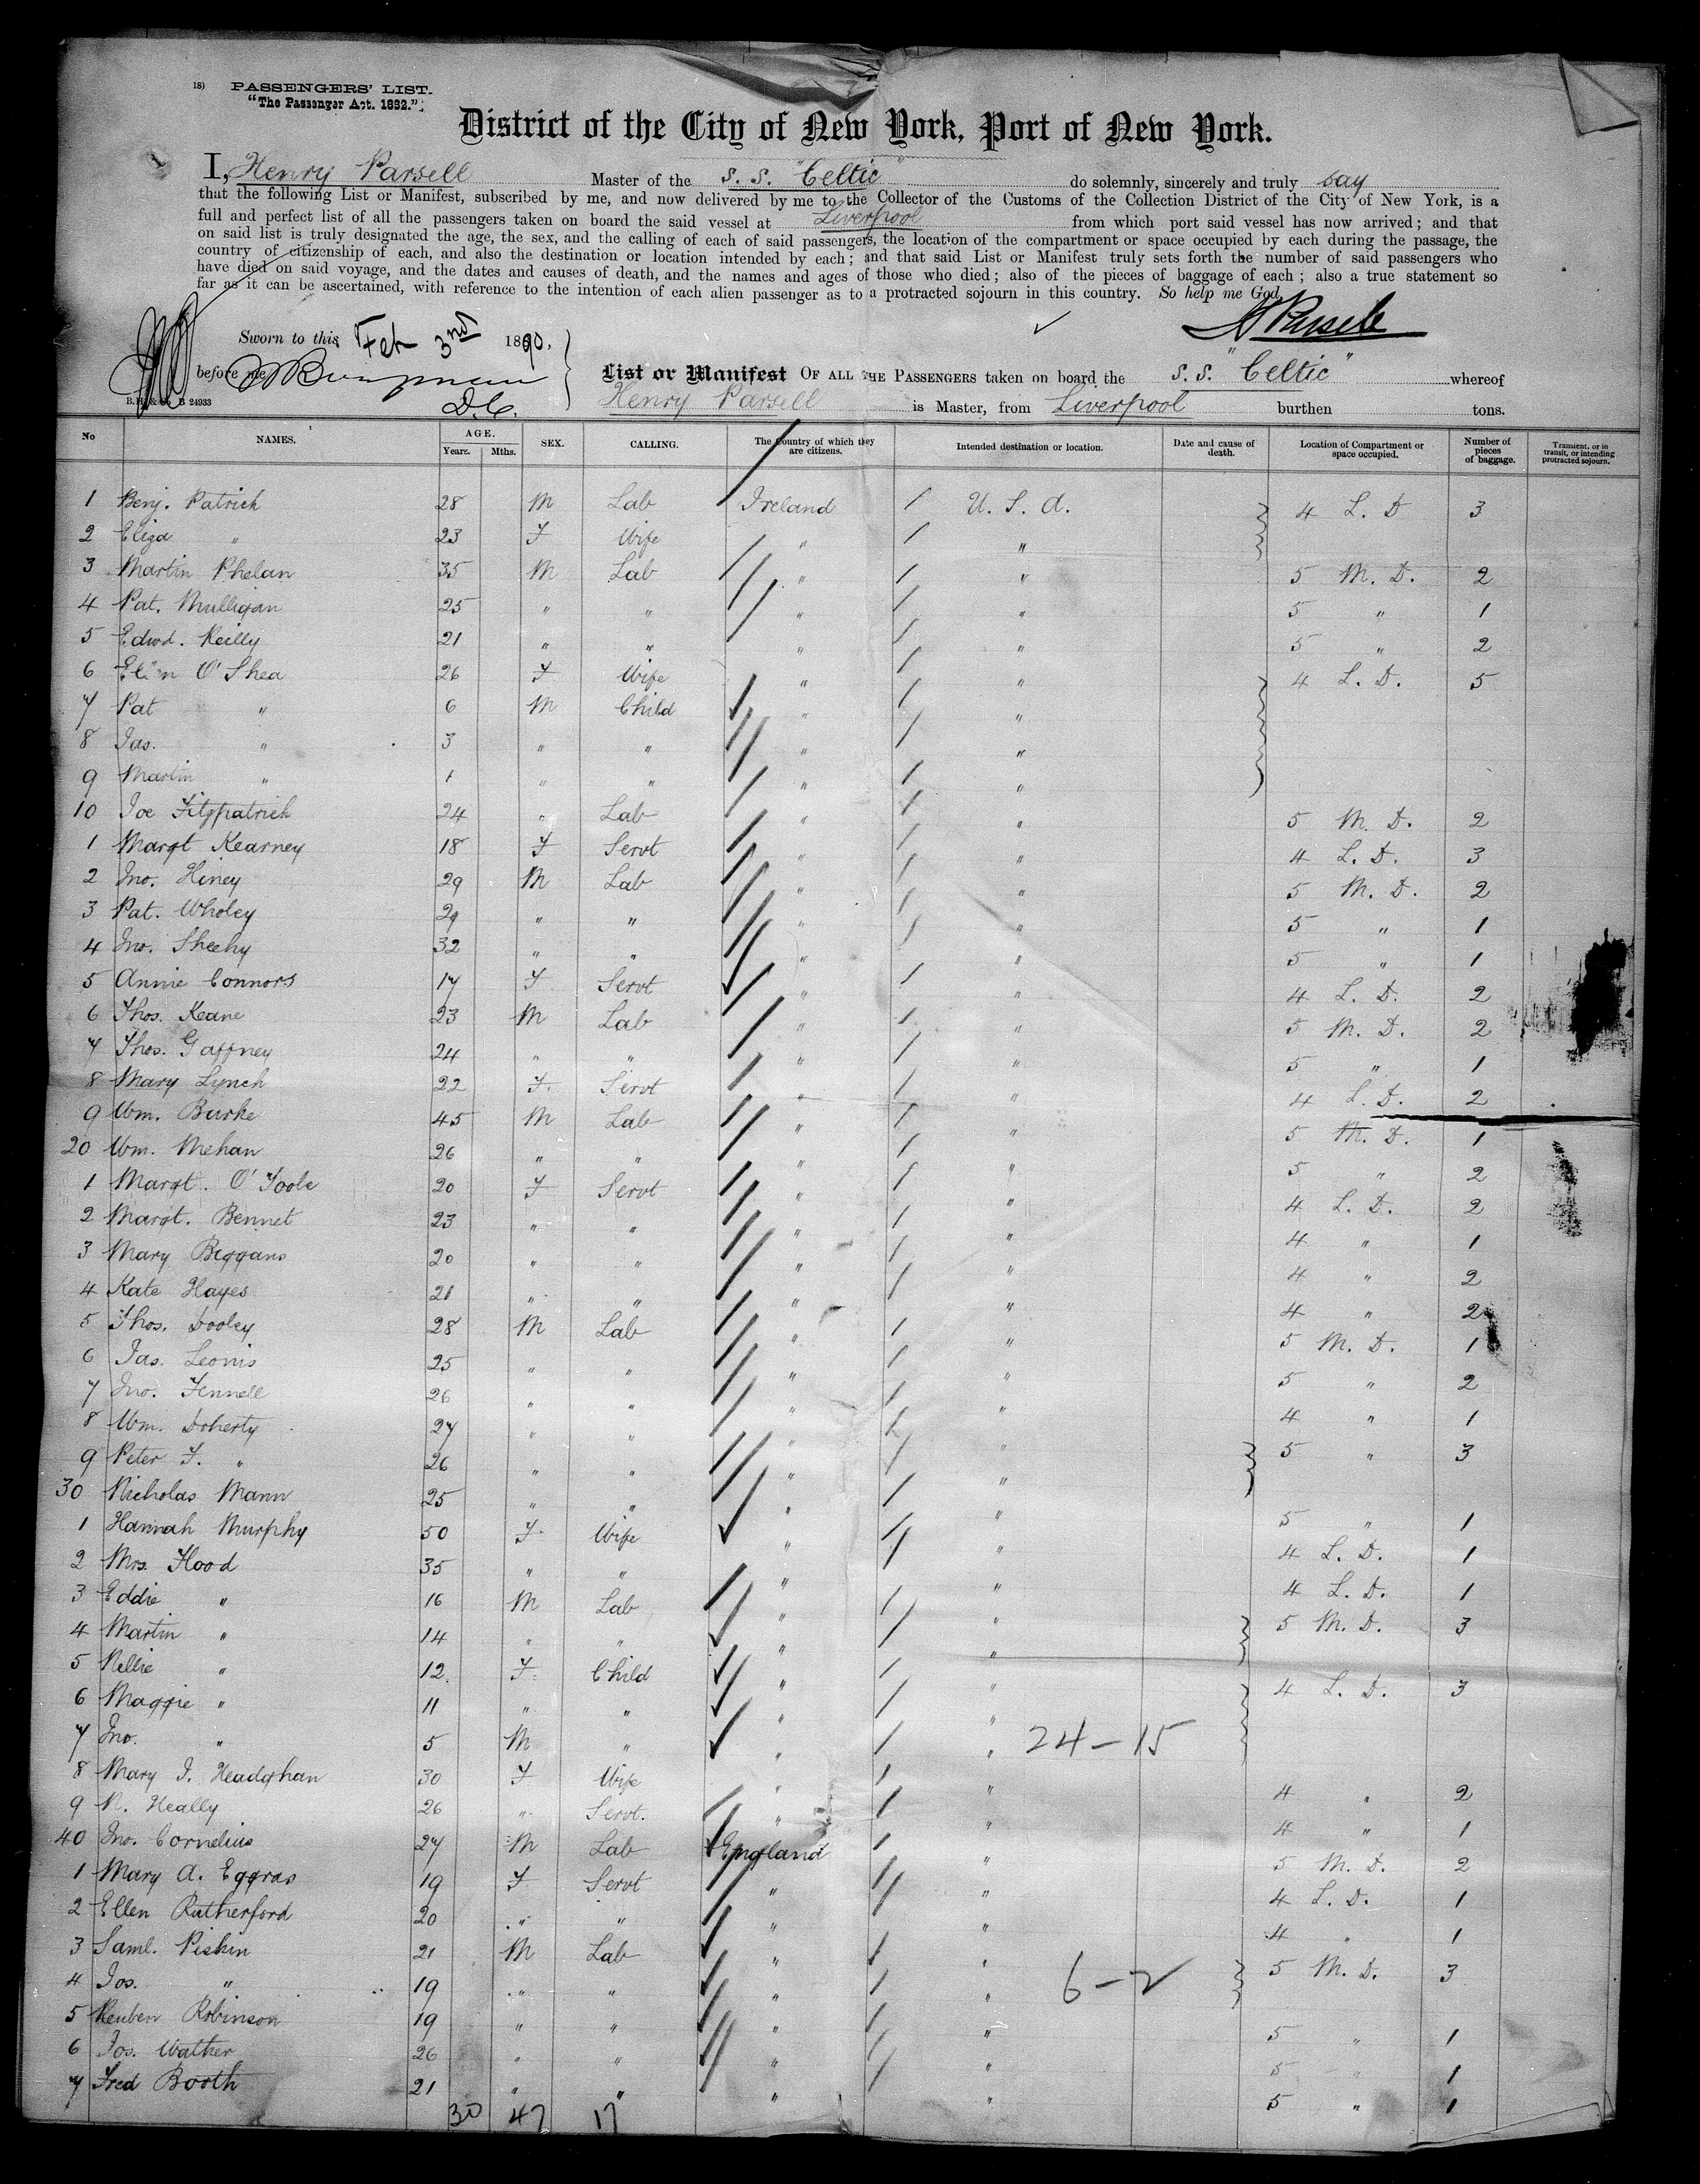 18) PASSENGERS' LIST.
"The Passenger Act. 1882."
District of the City of New York, Port of New York.
I, Henry Parsell Master of the S. S. "Celtic" do solemnly, sincerely and truly say
that the following List or Manifest, subscribed by me, and now delivered by me to the Collector of the Customs of the Collection District of the City of New York, is a
full and perfect list of all the passengers taken on board the said vessel at Liverpool from which port said vessel has now arrived; and that
on said list is truly designated the age, the sex, and the calling of each of said passengers, the location of the compartment or space occupied by each during the passage, the
country of citizenship of each, and also the destination or location intended by each; and that said List or Manifest truly sets forth the number of said passengers who
have died on said voyage, and the dates and causes of death, and the names and ages of those who died; also of the pieces of baggage of each; also a true statement so
far as it can be ascertained, with reference to the intention of each alien passenger as to a protracted sojourn in this country. So help me God
Sworn to this Feb 3rd 1890,
before me
D.C.
24933
List or Manifest OF ALL THE PASSENGERS taken on board the S. S. "Celtic" whereof
Henry Parsell is Master, from Liverpool burthen tons.
No NAMES. AGE. Years. Mths. SEX. CALLING. The Country of which they are citizens. Intended destination or location. Date and cause of death. Location of Compartment or space occupied. Number of pieces of baggage. Transient, or in transit, or intending protracted sojourn.
1 Benj. Patrick 28 M Lab Ireland U. S. A. 4 L. D 3
2 Eliza " 23 F Wife " "
3 Martin Phelan 35 M Lab " " 5 M. D. 2
4 Pat. Mulligan 25 " " " " 5 " 1
5 Edwd. Reilly 21 " " " " 5 " 2
6 O'Shea 26 F Wife " " 4 L. D. 5
7 Pat " 6 M Child " "
8 Jas. " 3 " " " "
9 Martin " 1 " " " "
10 Joe Fitzpatrick 24 " Lab " " 5 M. D. 2
1 Margt Kearney 18 F Servt " " 4 L. D. 3
2 Jno. Hiney 29 M Lab " " 5 M. D. 2
3 Pat. Wholey 29 " " " " 5 " 1
4 Jno. Sheehy 32 " " " " 5 " 1
5 Annie Connors 17 F Servt " " 4 L. D. 2
6 Thos. Keane 23 M Lab " " 5 M. D. 2
7 Thos. Gaffney 24 " " " " 5 " 1
8 Mary Lynch 22 F. Servt " " 4 L. D. 2
9 Wm. Burke 45 M Lab " " 5 M. D. 1
20 Wm. Mehan 26 " " " " 5 " 2
1 Margt. O'Toole 20 F Servt " " 4 L. D. 2
2 Margt. Bennet 23 " " " " 4 " 1
3 Mary Biggans 20 " " " " 4 " 2
4 Kate Hayes 21 " " " " 4 " 2
5 Thos. Dooley 28 M Lab " " 5 M. D. 1
6 Jas. Leonis 25 " " " " 5 " 2
7 Jno. Fennell 26 " " " " 4 " 1
8 Wm. Doherty 27 " " " " 5 " 3
9 Peter F. " 26 " " " "
30 Nicholas Mann 25 " " " " 5 " 1
1 Hannah Murphy 50 F. Wife " " 4 L. D. 1
2 Mrs. Flood 35 " " " " 4 L. D. 1
3 Eddie " 16 M Lab " " 5 M. D. 3
4 Martin " 14 " " " "
5 Nellie " 12. F. Child " " 4 L. D. 3
6 Maggie " 11 " " " "
7 Jno. " 5 M " " " 24-15
8 Mary J. Headghan 30 F Wife " " 4 " 2
9 N. Heally 26 " Servt. " " 4 " 1
40 Jno. Cornelius 27 M Lab England " 5 M. D. 2
1 Mary A. Eggras 19 F Servt " " 4 L. D. 1
2 Ellen Rutherford 20 " " " " 4 " 1
3 Saml. Piskin 21 M Lab " " 5 M. D. 3
4 Jos. " 19 " " " " 6-2
5 Reuben Robinson 19 " " " " 5 " 1
6 Jos. Wather 26 " " " " 5 " 1
7 Fred Booth 21 " " " " 5 " 1
30 47 17